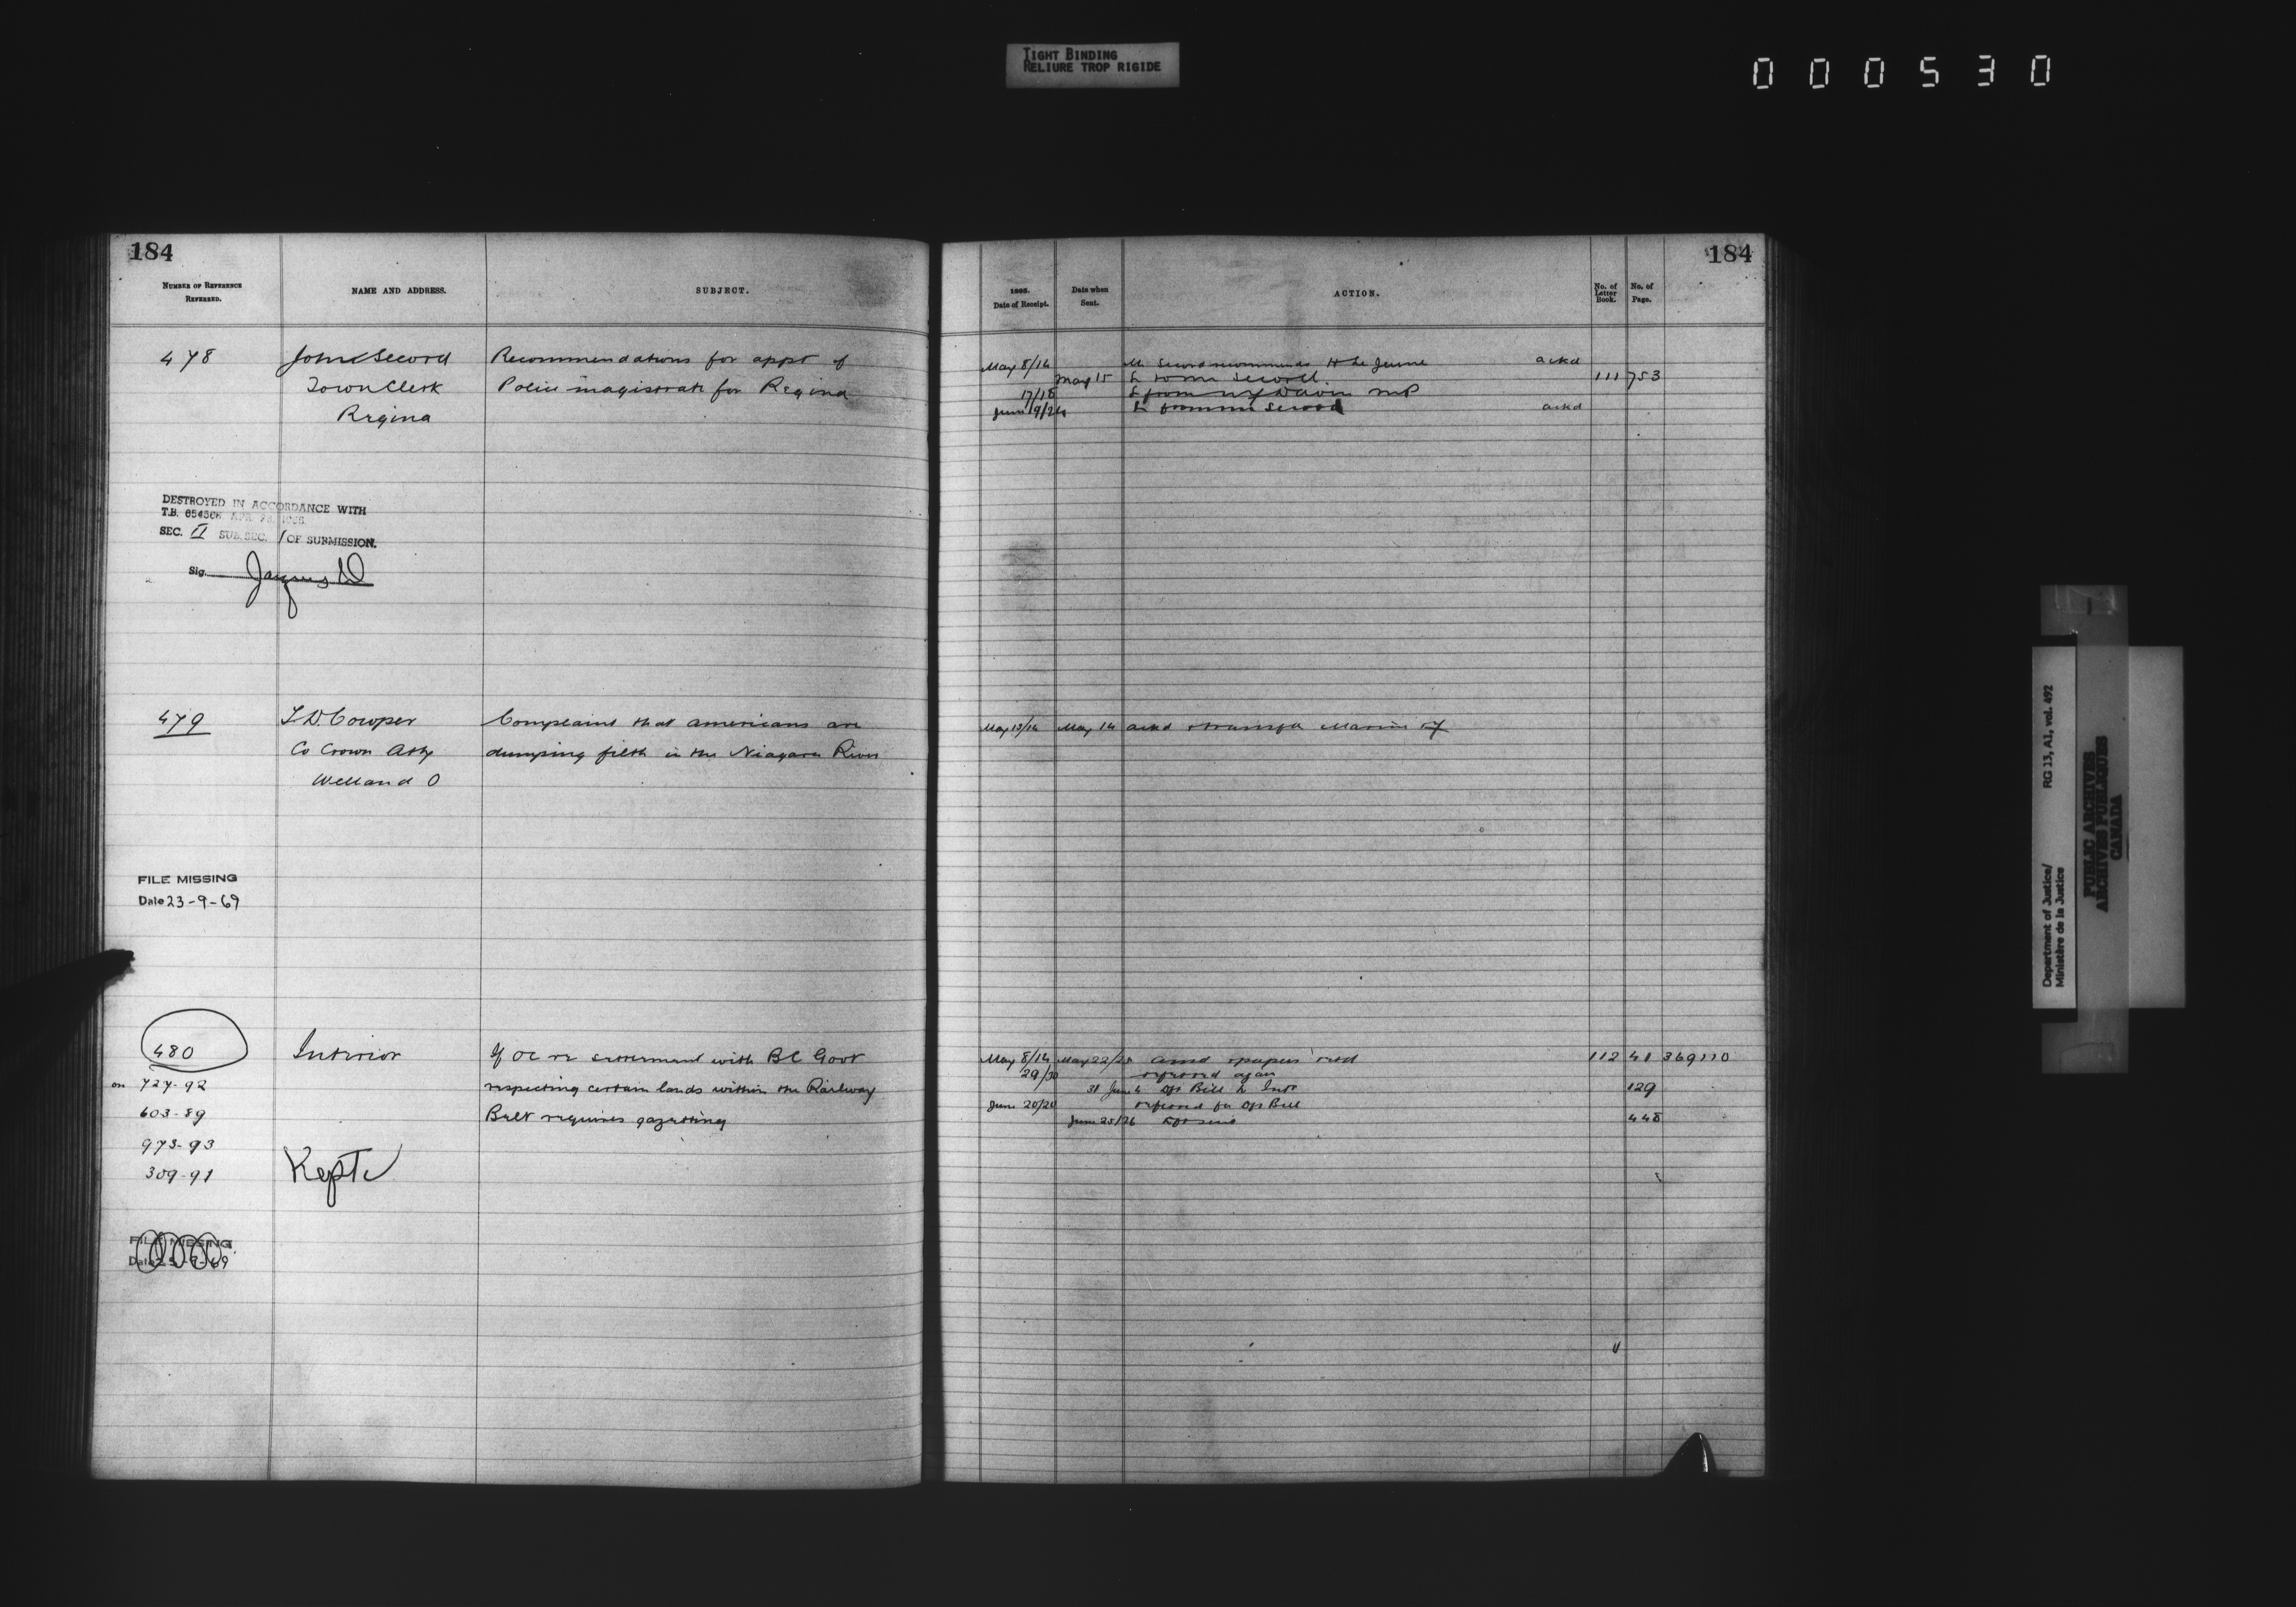 TIGHT BINDING
RELIURE TROP RIGIDE
000530
184
NUMBER OF REFERENCE REFERRED.
NAME AND ADDRESS.
SUBJECT.
478
John Secord
Town Clerk
Regina
Recommendations for appt of
Police magistrate for Regina
DESTROYED IN ACCORDANCE WITH
T.B.
SEC. II SUB. SEC. 1 OF SUBMISSION.
Sig.
479
T.D. Cowper
Co Crown Atty
Welland O
Complaint that Americans are
dumping filth in the Niagara River
FILE MISSING
Date 23-9-69
480
on 727-92
603-89
973-93
309-91
Interior
Kept
If OC re settlement with BC Govt
respecting certain lands within the Railway
Belt requires gazetting
FILE MISSING
Date 23-9-69
184
1895.
Date of Receipt.
Date when Sent.
ACTION.
No. of Letter Book.
No. of Page.
May 8/14 Mr Secord recommends H Le Jeune ackd
May 15 L to Mr Secord 111 753
17/18 L from Davin MP
June 19/24 L from Mr Secord ackd
May 13/14 May 14 ackd Marine
May 8/14 May 22/25 papers retd 112 41 369110
29/30 referred again
31 June 4 Dft Bill to Intr 129
June 20/20 referred for Dft Bill
June 25/26 448
Department of Justice/
Ministère de la Justice
RG 13, A1, vol. 492
PUBLIC ARCHIVES
ARCHIVES PUBLIQUES
CANADA